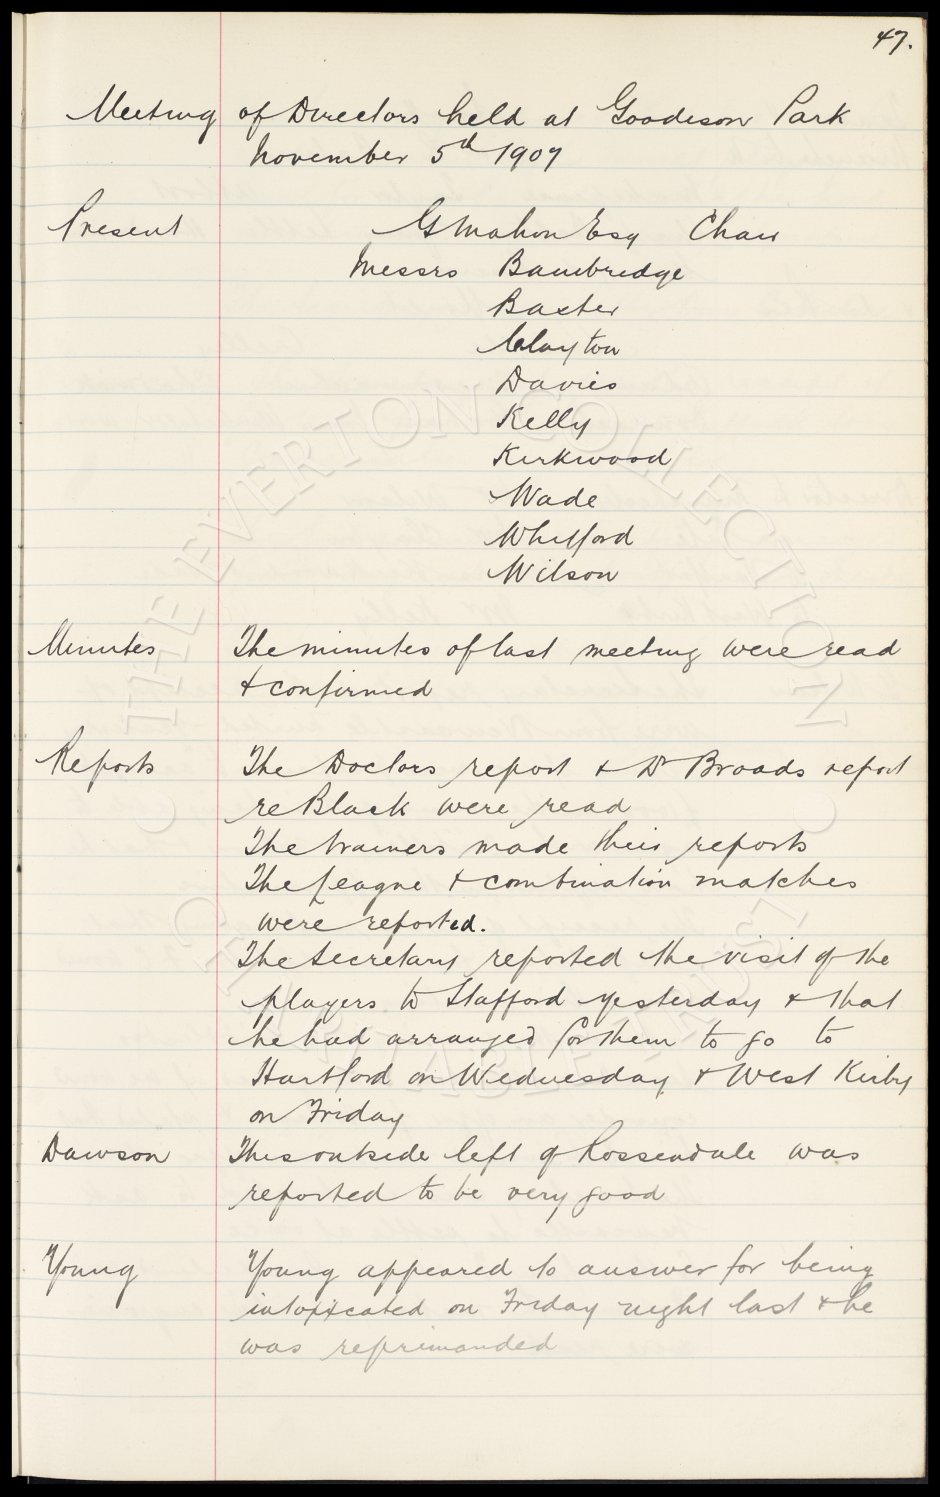 47.
Meeting of Directors held at Goodison Park
November 5th 1907
Present G Mahon Esq Chair
Messrs Bainbridge
Baxter
Clayton
Davies
Kelly
Kirkwood
Wade
Whitford
Wilson
Minutes The minutes of last meeting were read
& confirmed
Reports The Doctors report & Dr Broads report
re Black were read
The trainers made their reports
The League & combination matches
were reported.
The Secretary reported the visit of the
players to Stafford yesterday & that
he had arranged for them to go to
Hartford on Wednesday & West Kirby
on Friday
Dawson This outside left of Rossendale was
reported to be very good
Young Young appeared to answer for being
intoxicated on Friday night last & he
was reprimanded
THE EVERTON COLLECTION
CHARITABLE TRUST